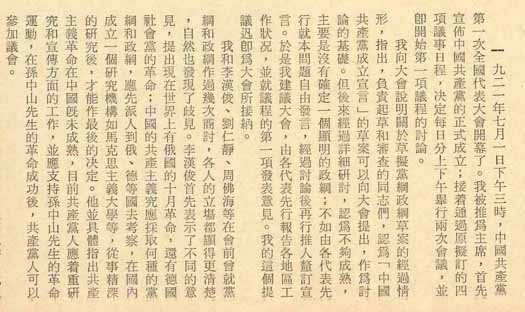 一九二一年七月一日下午三時，中國共產黨
第一次全國代表大會開幕了。我被推爲主席，首先
宣佈中國共產黨的正式成立；接着通過原擬訂的四
項議事日程，决定每日分上下午舉行兩次會議，並
卽開始第一項議程的討論。
我向大會說明關於草擬黨綱政綱草案的經過情
形，指出，負責起草和審查的同志們，認爲「中國
共產黨成立宣言」的草案可以向大會提出，作爲討
論的基礎。但後來經過詳細研討，認爲不夠成熟，
主要是沒有確定一個顯明的政綱；不如由各代表先
行就本問題自由發言，經過討論後再行推人釐訂宣
言。於是我建議大會，由各代表先行報告各地區工
作狀况，並就議程的第一項發表意見。我的這個提
議迅卽爲大會所接納。
我和李漢俊、劉仁靜、周佛海等在會前曾就黨
綱和政綱作過幾次商討，各人的立塲都顯得更清楚
，自然也發現了歧見。李漢俊首先表示了不同的意
見，提出現在世界上有俄國的十月革命，還有德國
社會黨的革命；中國的共產主義究應採取何種的黨
綱和政綱，應先派人到俄、德等國去考察，在國內
成立一個研究機構如馬克思主義大學等，從事精深
的研究後，才能作最後的决定。他並具體指出共產
主義革命在中國旣未成熟，目前共產黨人應着重研
究和宣傳方面的工作，並應支持孫中山先生的革命
運動，在孫中山先生的革命成功後，共產黨人可以
參加議會。